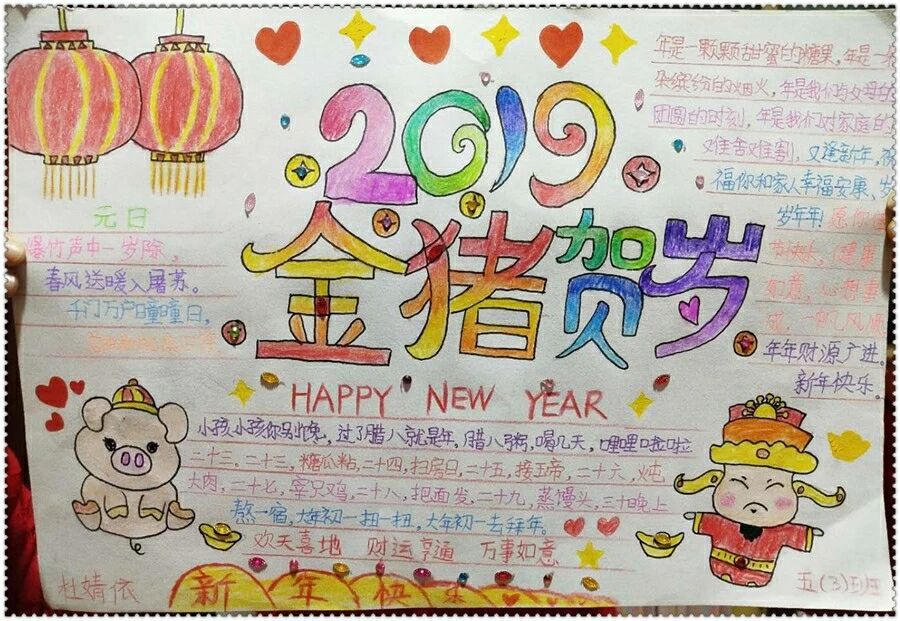 2019
金猪贺岁
HAPPY NEW YEAR
元日
爆竹声中一岁除,
春风送暖入屠苏。
千门万户曈曈日,
年是一颗颗甜蜜的糖果,年是一
朵缤纷的烟火,年是我们与父母的
团圆的时刻,年是我们对家庭的
难舍难割,又逢新年,祝
福你和家人幸福安康、岁
岁年年!愿你佳
节快乐,健康
如意,心想事
成,一帆风顺
年年财源广进。
新年快乐。
小孩小孩你别馋,过了腊八就是年,腊八粥,喝几天,哩哩啦啦
二十三,二十三,糖瓜粘,二十四,扫房日,二十五,接玉帝,二十六,炖
大肉,二十七,宰只鸡,二十八,把面发,二十九,蒸馒头,三十晚上
熬一宿,大年初一扭一扭,大年初一去拜年。
欢天喜地 财运亨通 万事如意
杜婧依
新年快乐
五(3)班